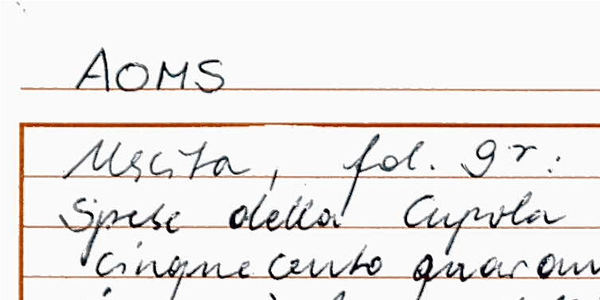 AOMS
Uscita, fol. 9r:
Spese della Cupola
cinquecento